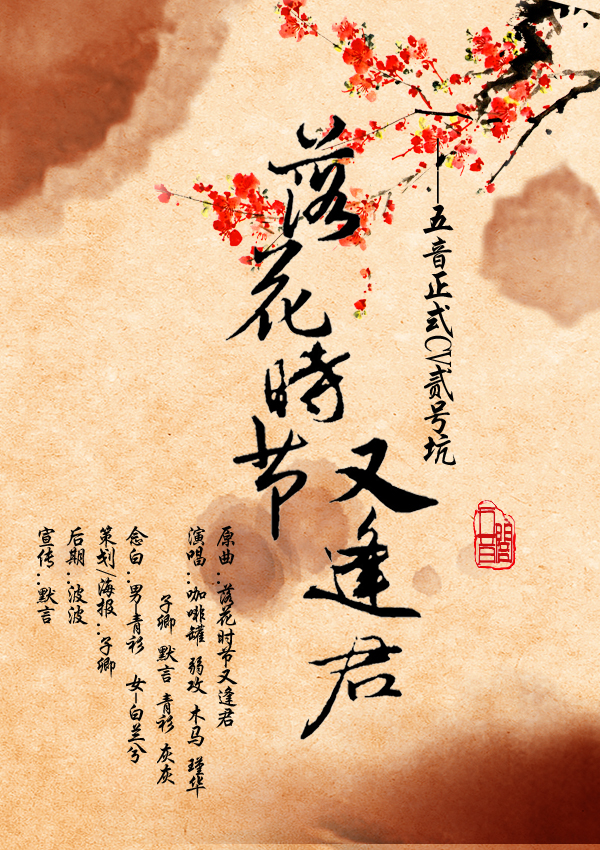 落花時节
又逢君
——五音正式CV贰号坑
原曲：落花时节又逢君
演唱：咖啡罐 弱攻 木马 瑾华
子卿 默言 青衫 灰灰
念白：男—青衫 女—白兰兮
策划/海报：子卿
后期：波波
宣传：默言